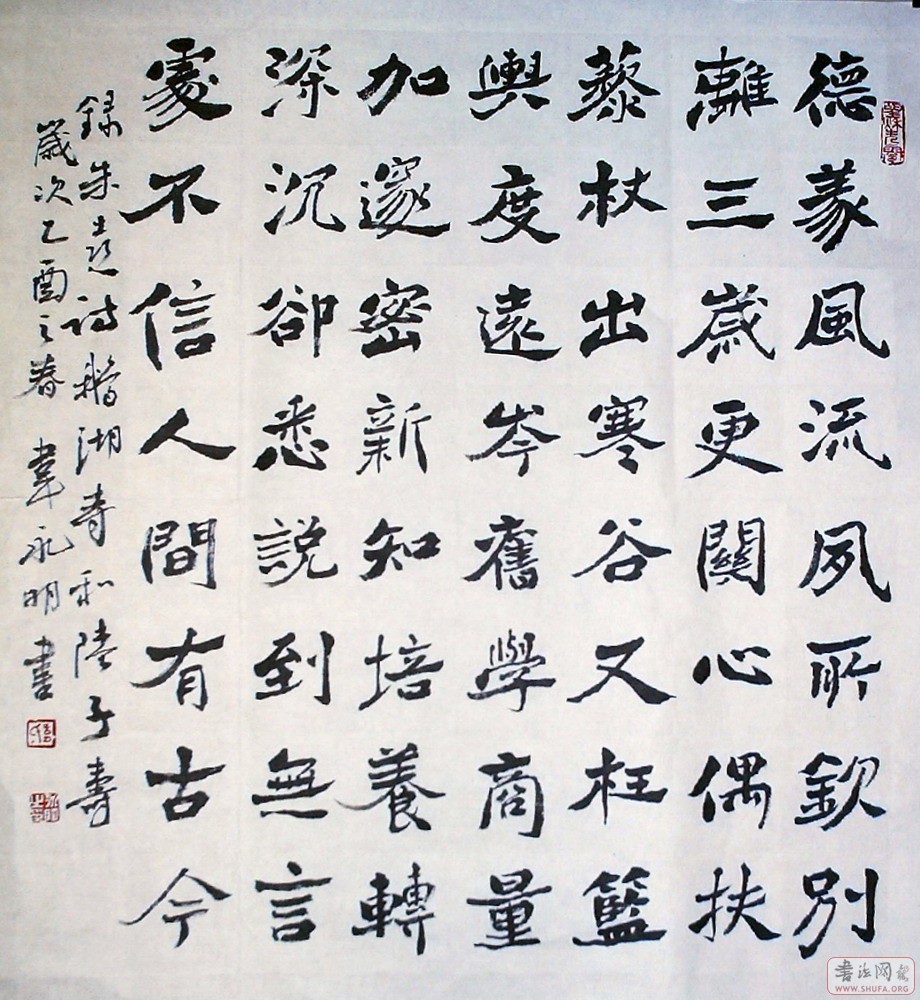 德義風流夙所欽別
離三歲更關心偶扶
藜杖出寒谷又枉籃
輿度遠岑舊學商量
加邃密新知培養轉
深沉卻悉說到無言
處不信人間有古今
錄朱熹詩鵝湖寺和陸子壽
歲次乙酉之春 韋永明書
書法网
WWW.SHUFA.ORG